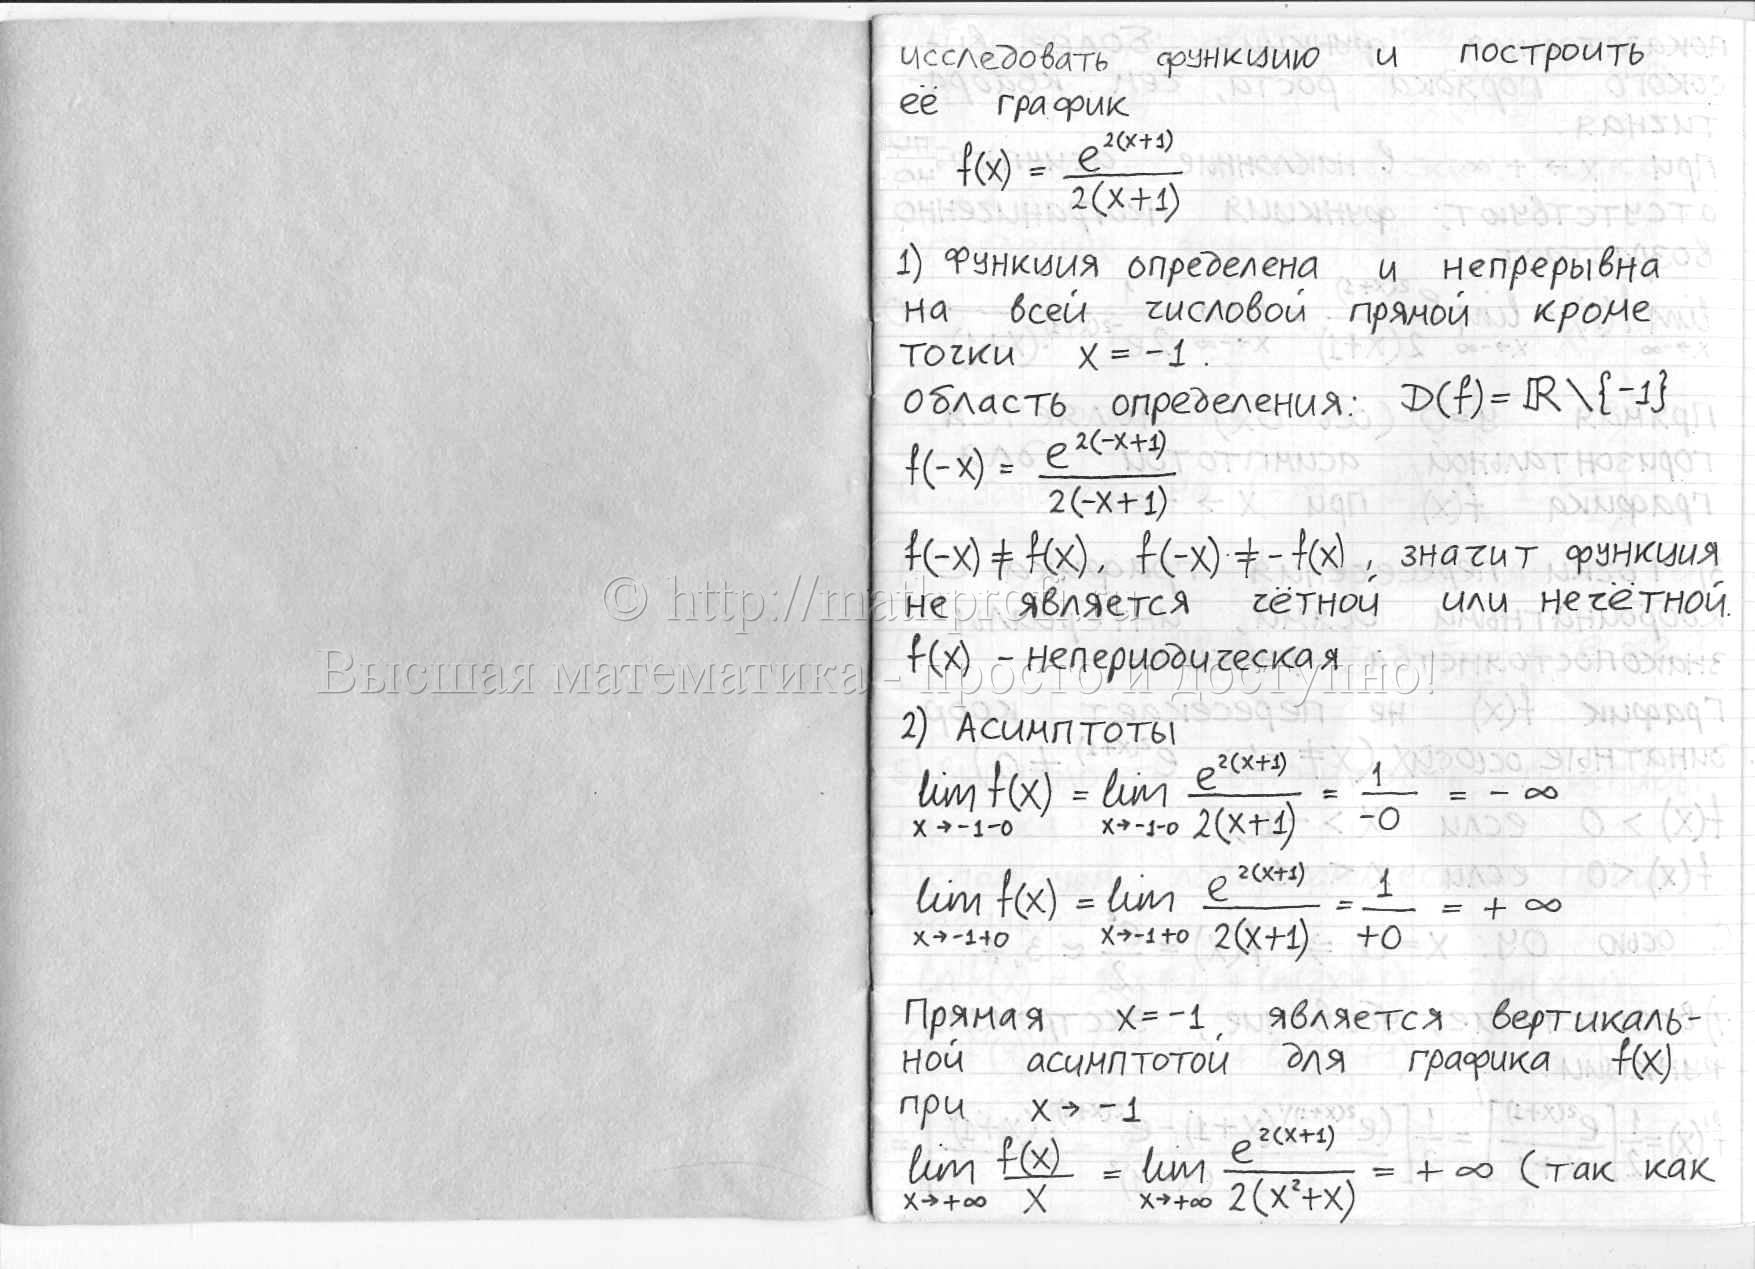 исследовать функцию и построить
её график
f(x) = e^{2(x+1)} / 2(x+1)
1) Функция определена и непрерывна
на всей числовой прямой кроме
точки x = -1.
область определения: D(f) = ℝ \ {-1}
f(-x) = e^{2(-x+1)} / 2(-x+1)
f(-x) ≠ f(x), f(-x) ≠ - f(x), значит функция
не является чётной или нечётной.
f(x) - непериодическая
© http://mathprofi.ru
Высшая математика - просто и доступно!
2) Асимптоты
lim_{x→-1-0} f(x) = lim_{x→-1-0} e^{2(x+1)} / 2(x+1) = 1 / -0 = - ∞
lim_{x→-1+0} f(x) = lim_{x→-1+0} e^{2(x+1)} / 2(x+1) = 1 / +0 = + ∞
Прямая x = -1 является вертикаль-
ной асимптотой для графика f(x)
при x → -1
lim_{x→+∞} f(x) / x = lim_{x→+∞} e^{2(x+1)} / 2(x²+x) = + ∞ (так как